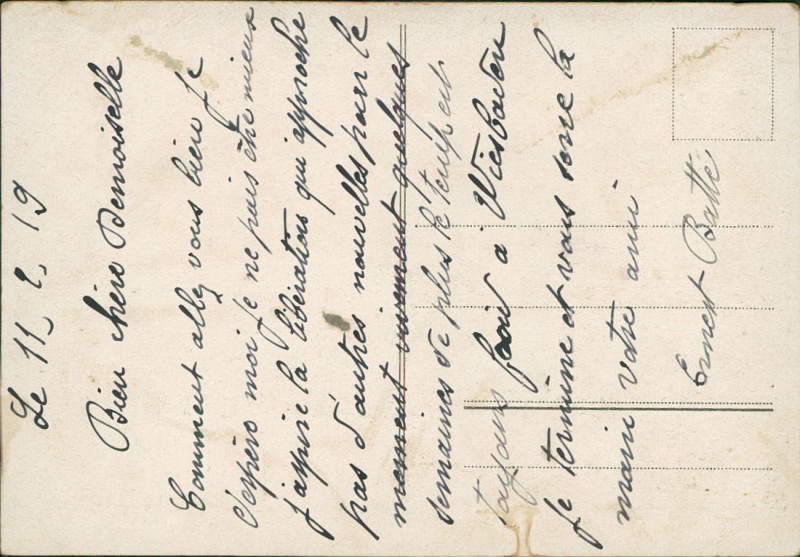 Le 11. 2. 19
Bien chère Demoiselle
Comment allez vous bien je
l'espère moi je ne puis être mieux
j'aspire la libérations qui approche
pas d'autres nouvelles pour le
moment vivement quelques
semaines de plus le temps est
toujours froid a Wiesbaden
je termine et vous serre la
main votre ami
Ernest